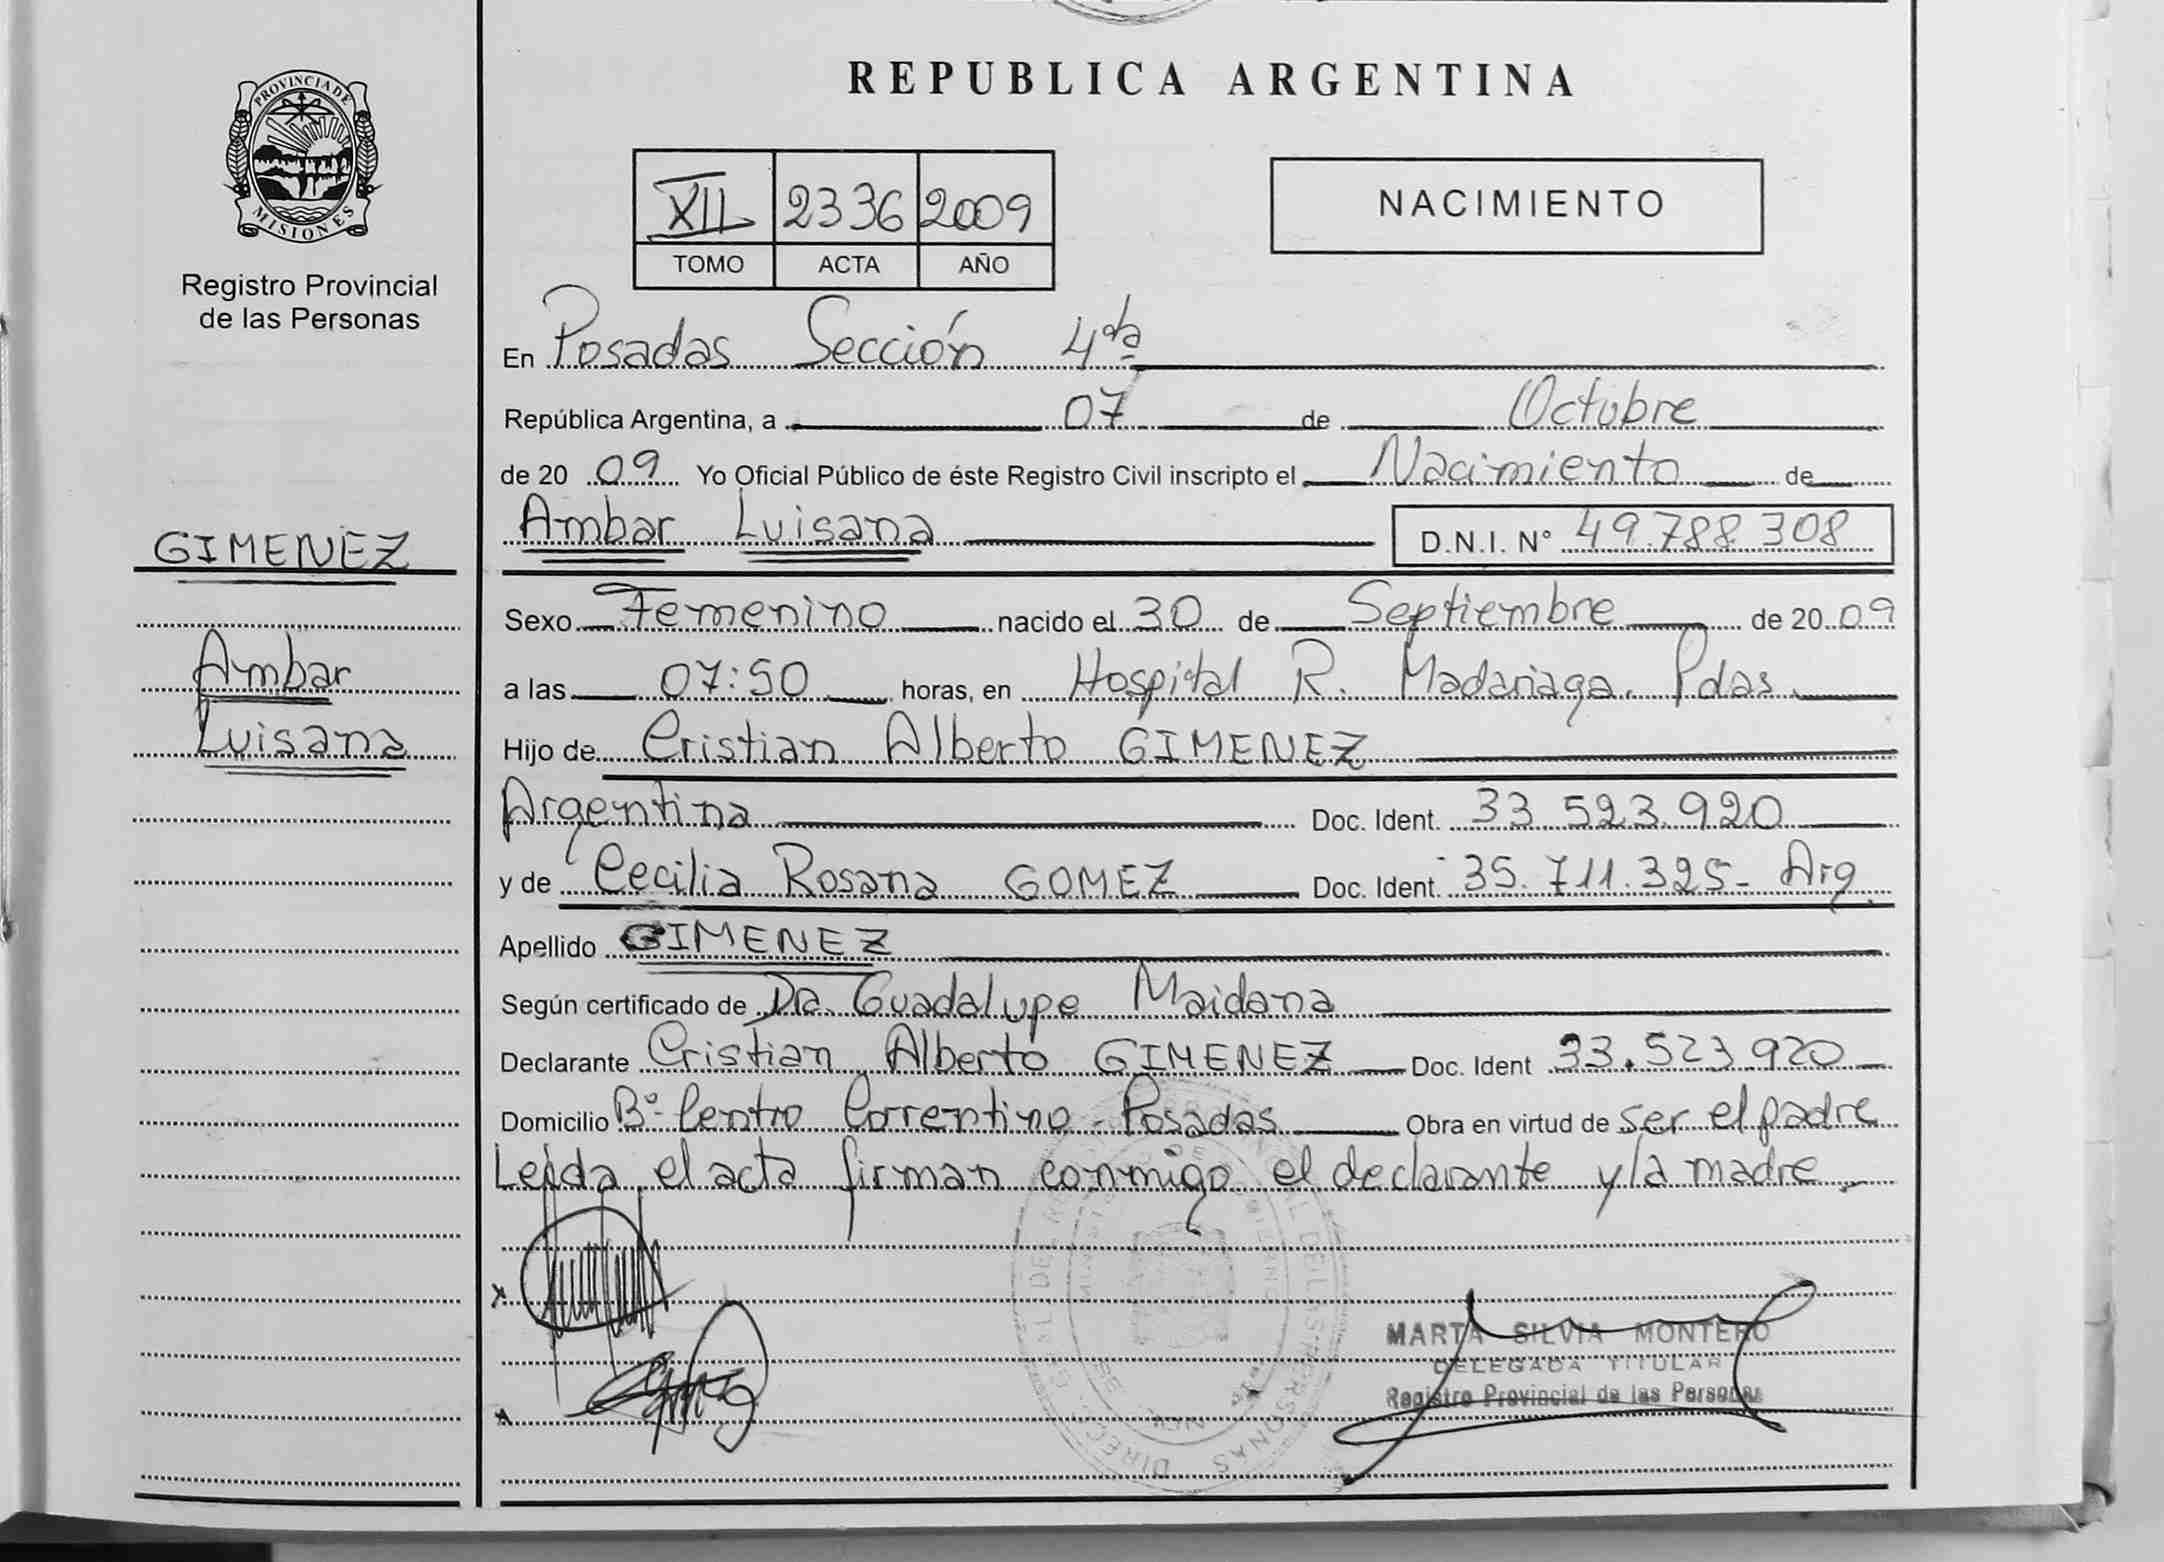 REPUBLICA ARGENTINA
PROVINCIA DE MISIONES
Registro Provincial
de las Personas
XII 2336 2009
TOMO ACTA AÑO
NACIMIENTO
En Posadas Sección 4ta
República Argentina, a 07 de Octubre
de 20 09 Yo Oficial Público de éste Registro Civil inscripto el Nacimiento de
Ambar Luisana D.N.I. N° 49.788.308
GIMENEZ
Ambar
Luisana
Sexo Femenino nacido el 30 de Septiembre de 20 09
a las 07:50 horas, en Hospital R. Madariaga. Pdas.
Hijo de Cristian Alberto GIMENEZ
Argentina Doc. Ident. 33.523.920
y de Cecilia Rosana GOMEZ Doc. Ident. 35.711.325- Arg.
Apellido GIMENEZ
Según certificado de Dra. Guadalupe Maidana
Declarante Cristian Alberto GIMENEZ Doc. Ident 33.523.920
Domicilio B° Centro Correntino - Posadas Obra en virtud de ser el padre
Leída el acta firman conmigo el declarante y la madre.
MARTA SILVIA MONTERO
DELEGADA TITULAR
Registro Provincial de las Personas